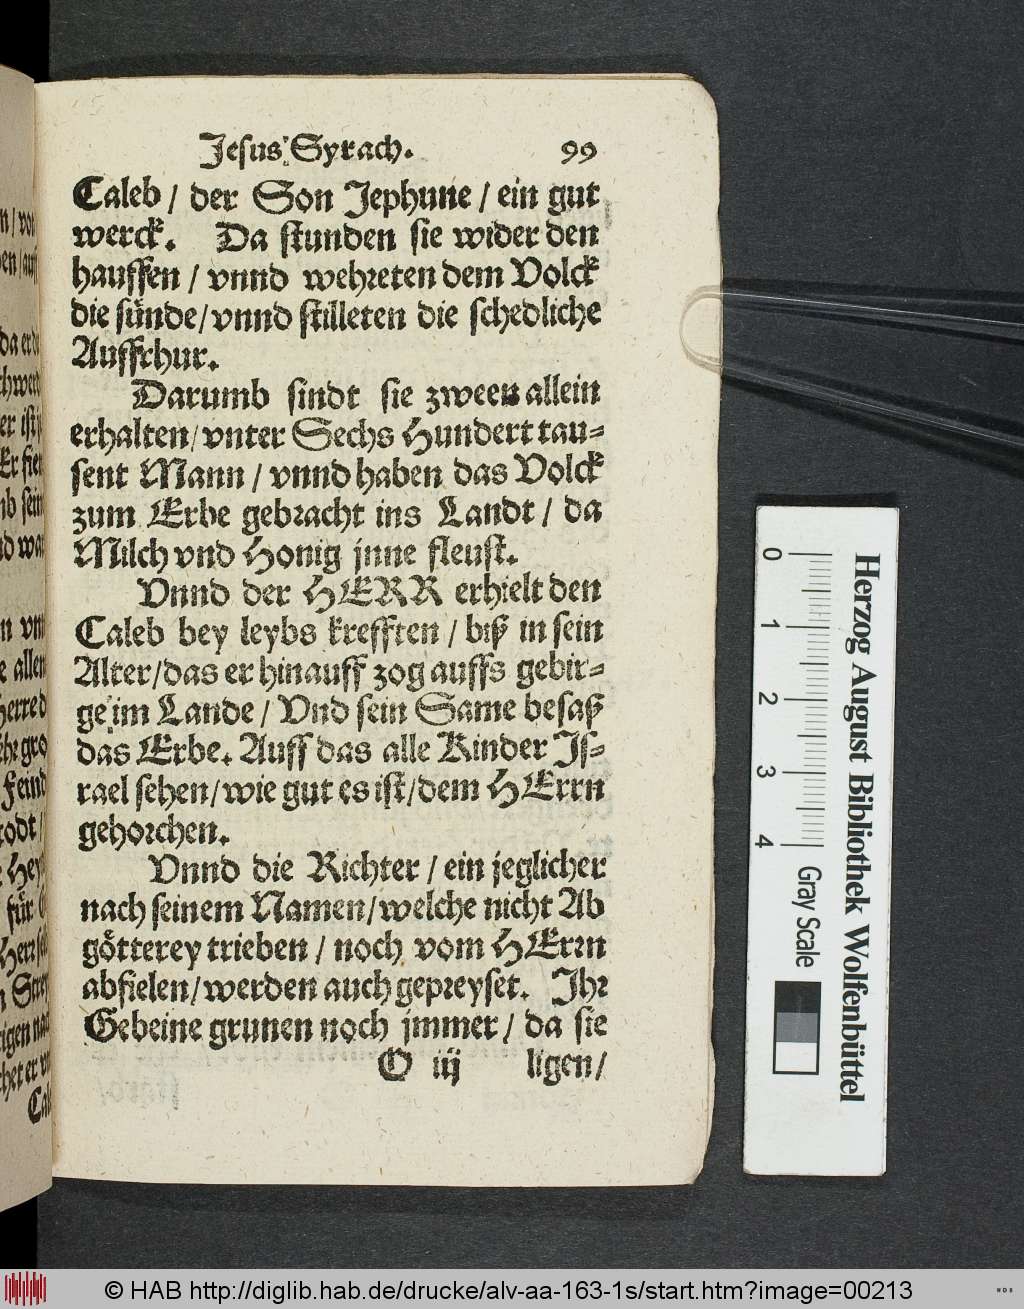 Jesus Syrach. 99
Caleb / der Son Jephune / ein gut
werck. Da stunden sie wider den
hauffen / vnnd wehreten dem Volck
die sünde / vnnd stilleten die schedliche
Auffrhur.
Darumb sindt sie zween allein
erhalten / vnter Sechs Hundert tau-
sent Mann / vnnd haben das Volck
zum Erbe gebracht ins Landt / da
Milch vnd Honig jnne fleust.
Vnnd der HERR erhielt den
Caleb bey leybs krefften / biß in sein
Alter / das er hinauff zog auffs gebir-
ge im Lande / Vnd sein Same besaß
das Erbe. Auff das alle Kinder Js-
rael sehen / wie gut es ist / dem HErrn
gehorchen.
Vnnd die Richter / ein jeglicher
nach seinem Namen / welche nicht Ab
götterey trieben / noch vom HErrn
abfielen / werden auch gepreyset. Jhr
Gebeine grunen noch jmmer / da sie
O iij ligen /
Herzog August Bibliothek Wolfenbüttel
0 1 2 3 4 Gray Scale
© HAB http://diglib.hab.de/drucke/alv-aa-163-1s/start.htm?image=00213